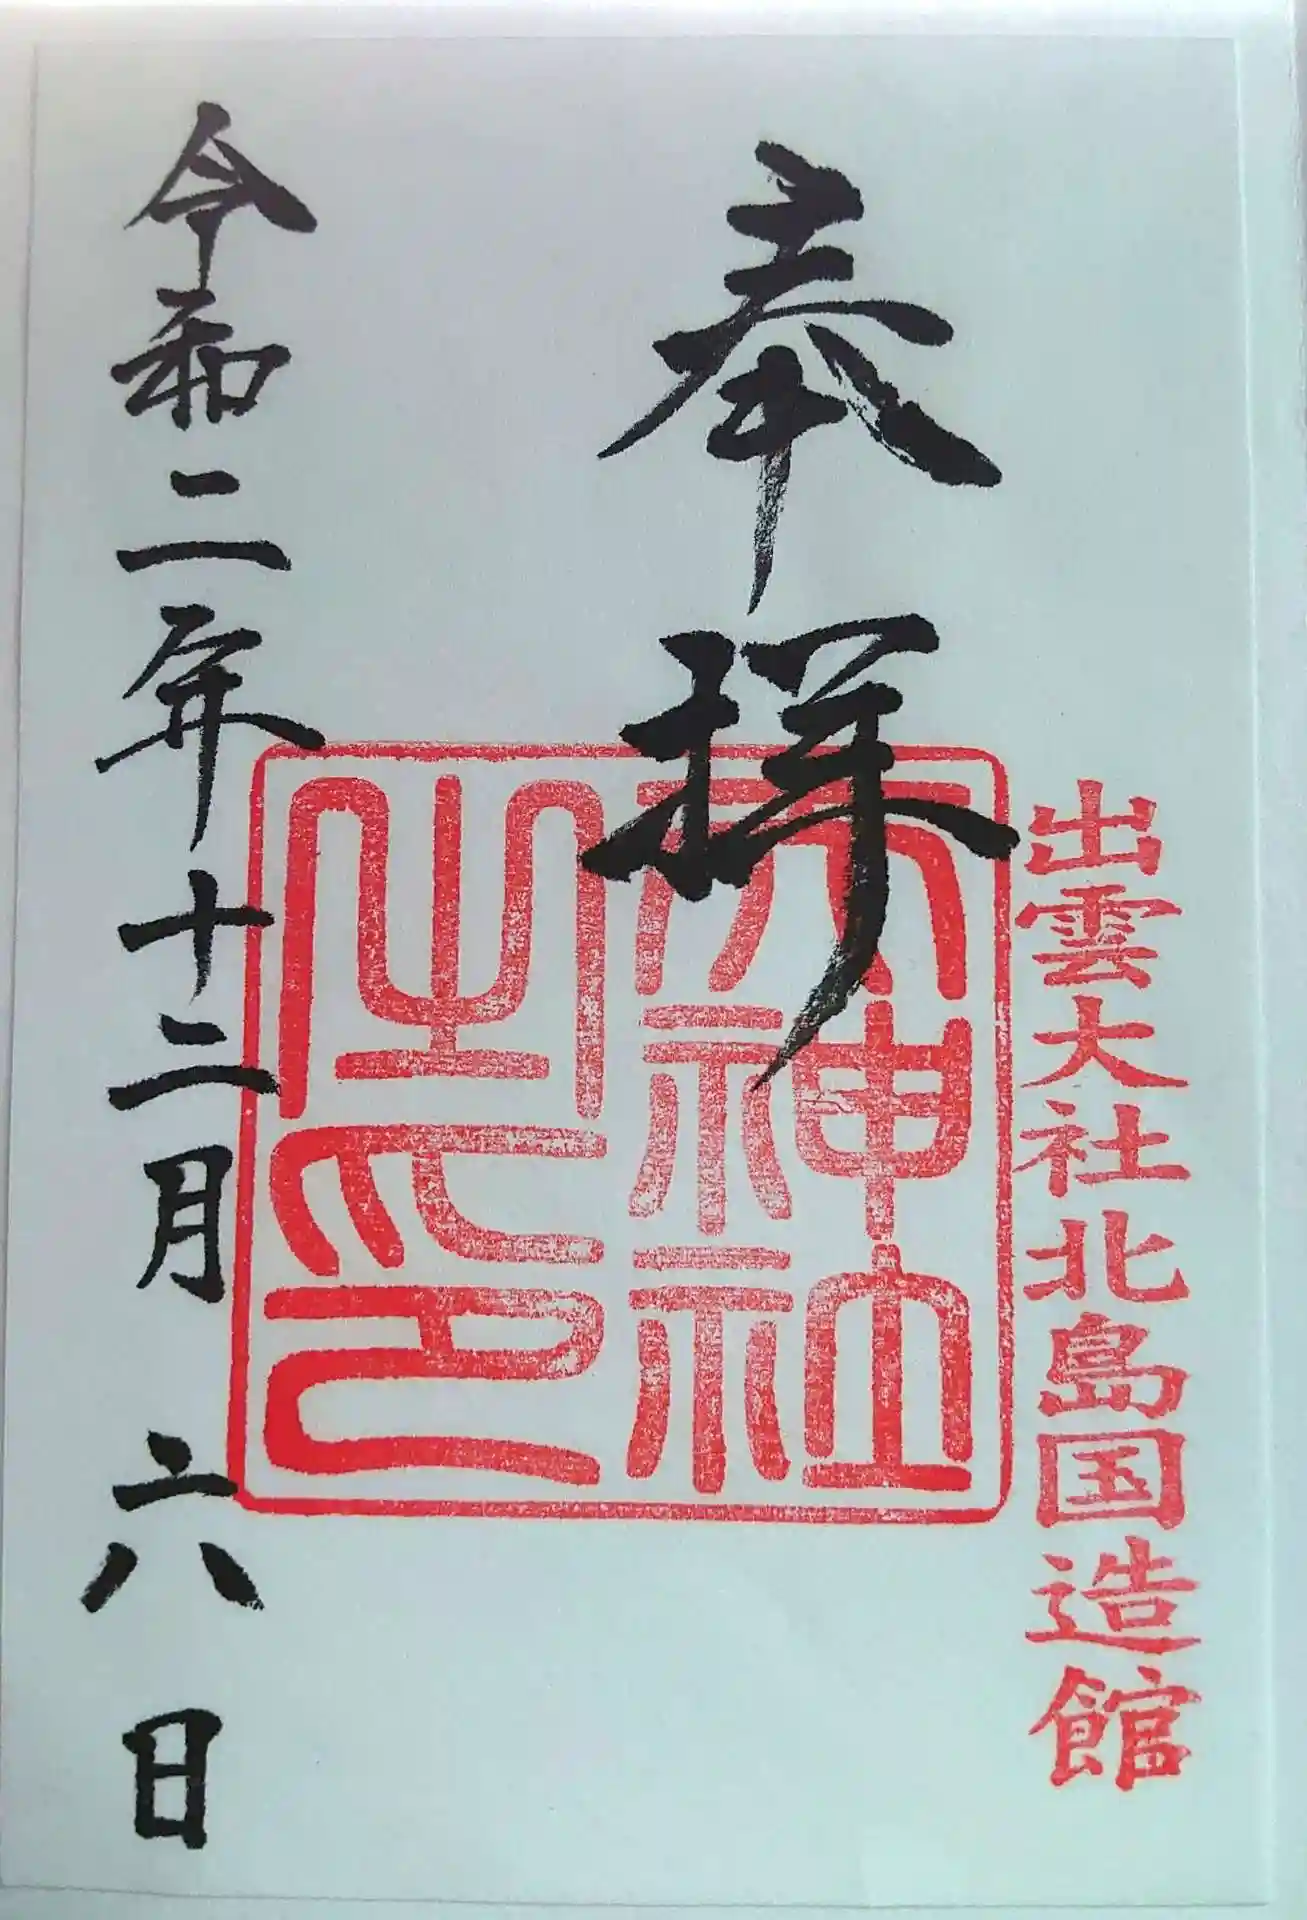 出雲大社北島国造館
奉拝
天神社
之印
令和二年十二月六日